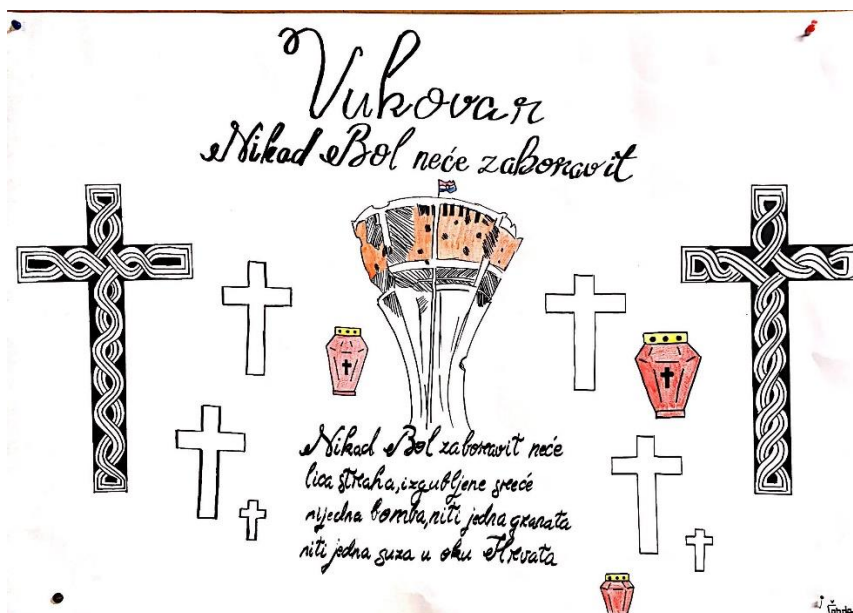 Vukovar
Nikad Bol neće zaboravit
Nikad Bol zaboravit neće
lica straha, izgubljene sreće
nijedna bomba, niti jedna granata
niti jedna suza u oku Hrvata